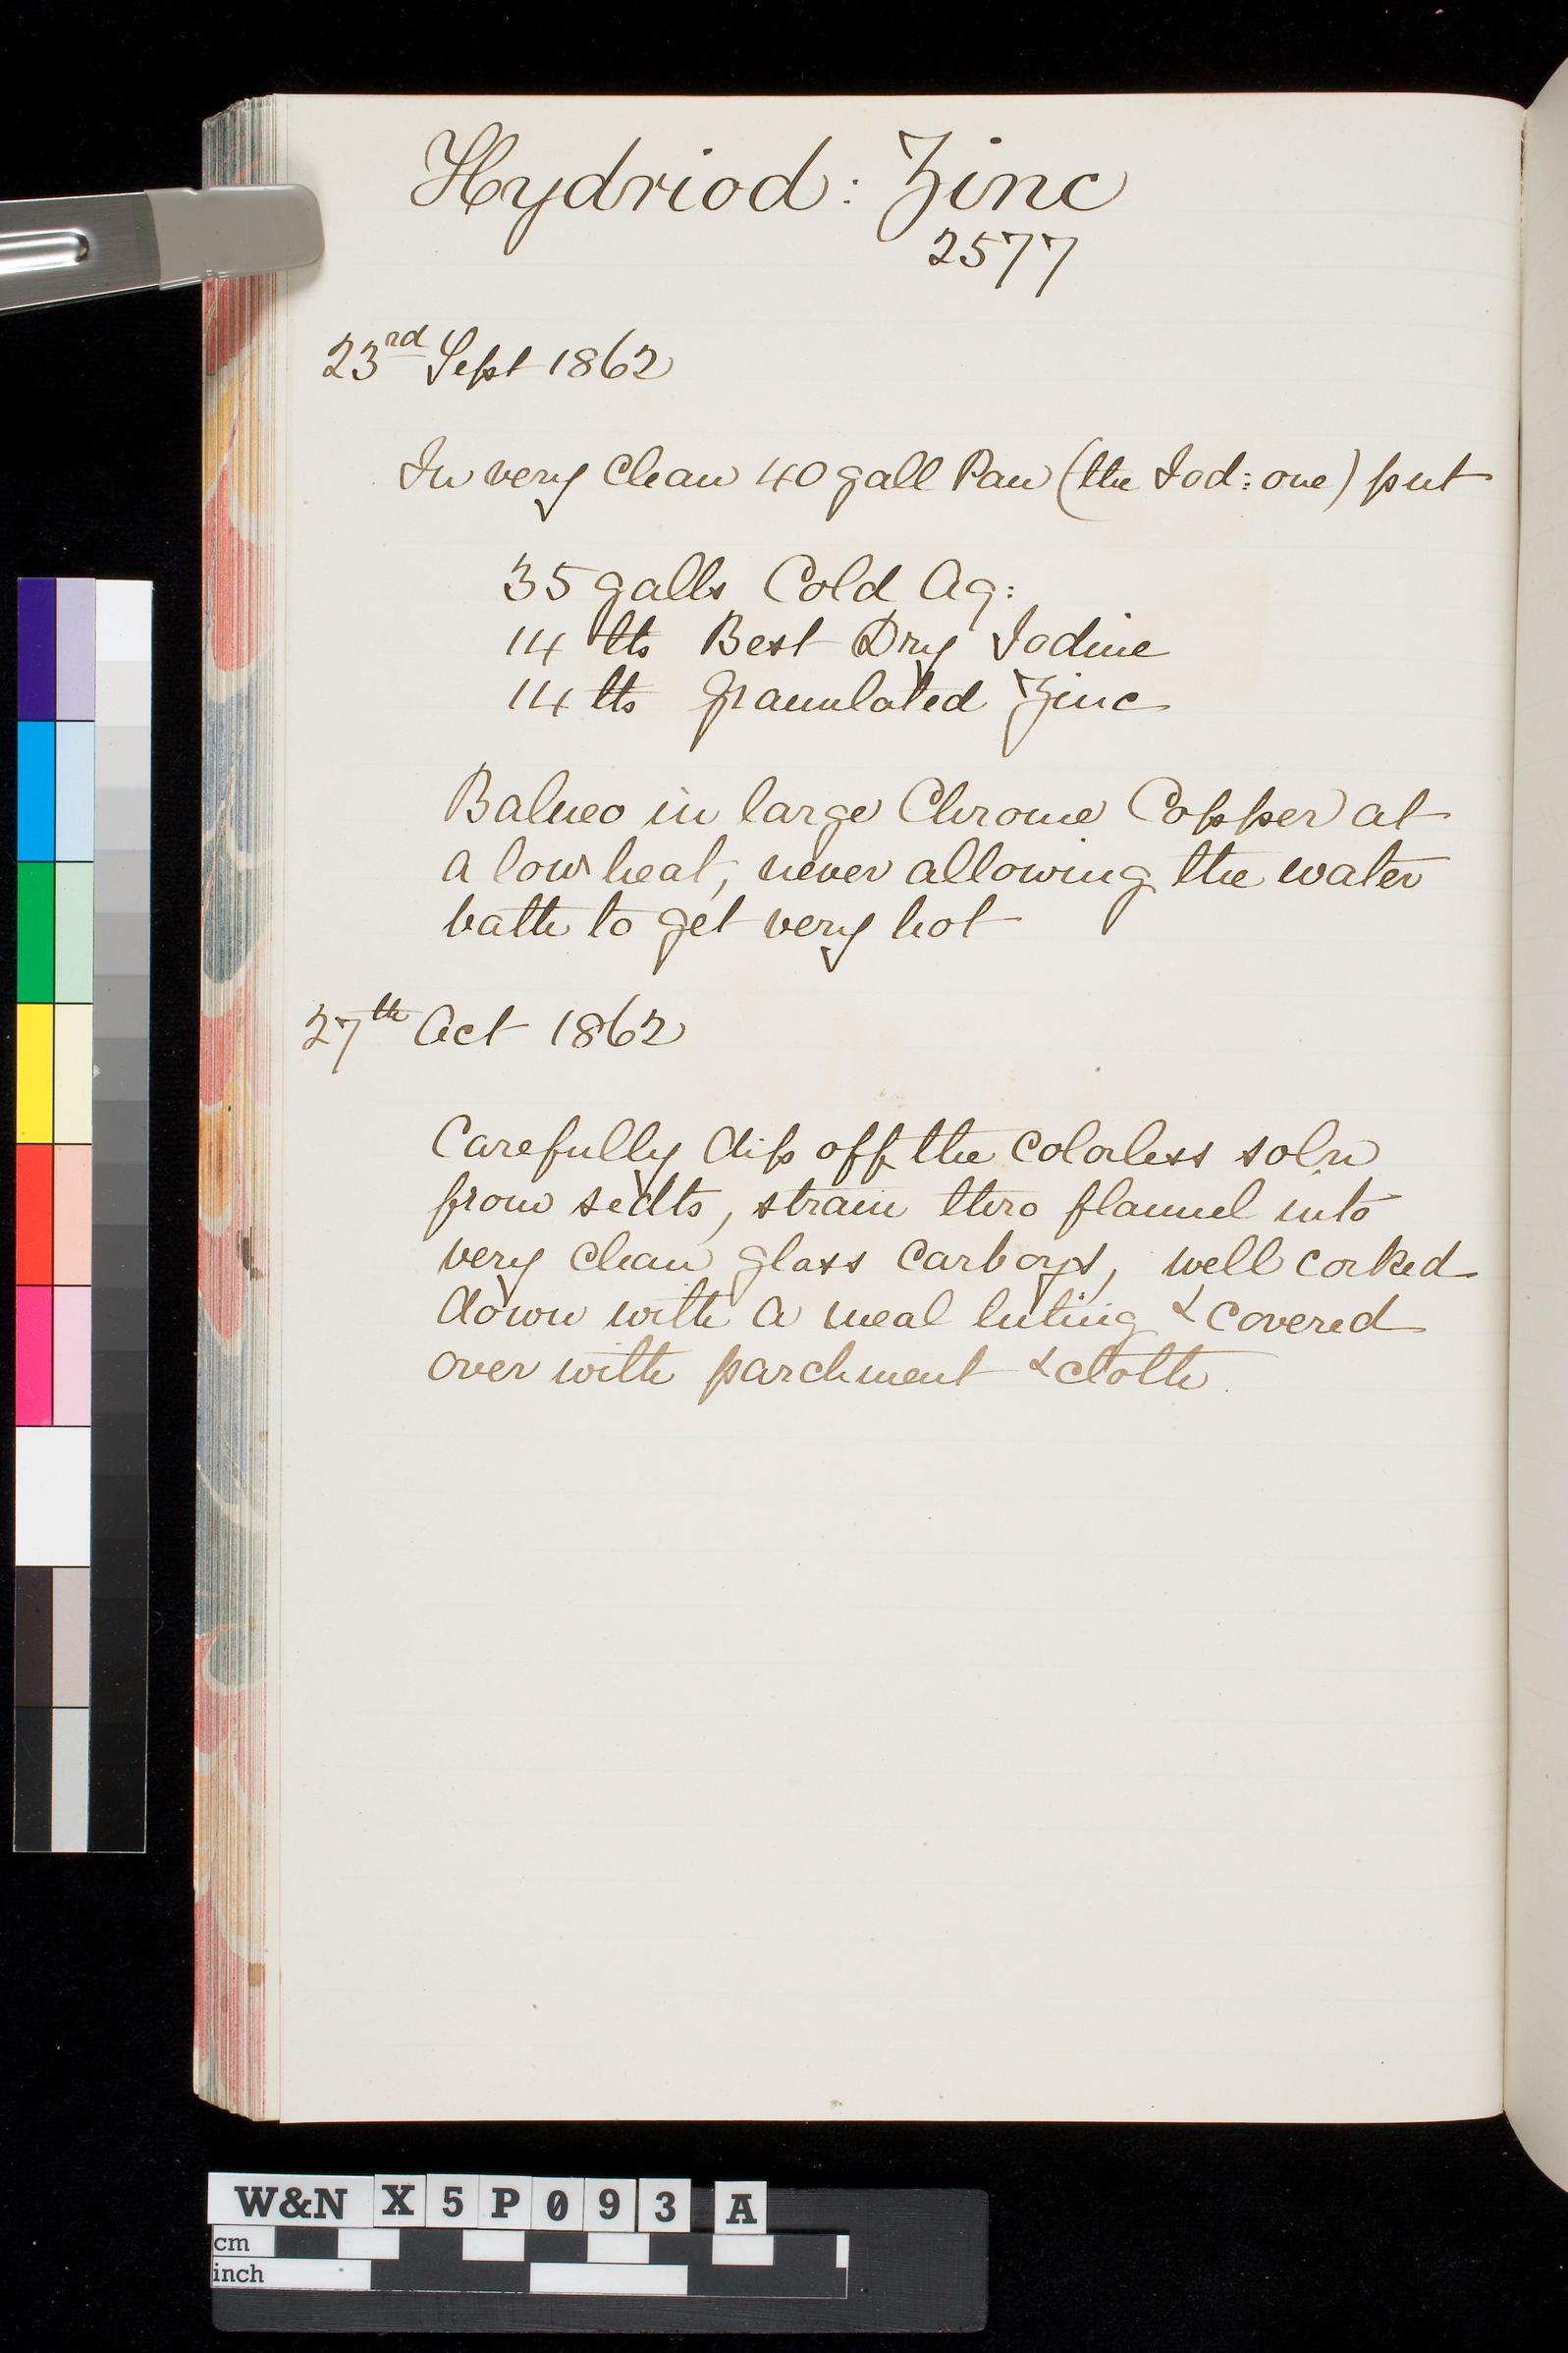 Hydriod: Zinc
2577
23rd Sept 1862
In very clean 40 gall Pan (the Iod: one) put
35 galls Cold Aq:
14 lbs Best Dry Iodine
14 lbs Granulated Zinc
Balneo in large Chrome Copper at
a low heat, never allowing the water
bath to get very hot
27th Oct 1862
Carefully dip off the colorless soln
from sedts, strain thro flannel into
very clean glass carboys, well corked
down with a meal luting & covered
over with parchment & cloth.
W&N X5P093 A
cm
inch